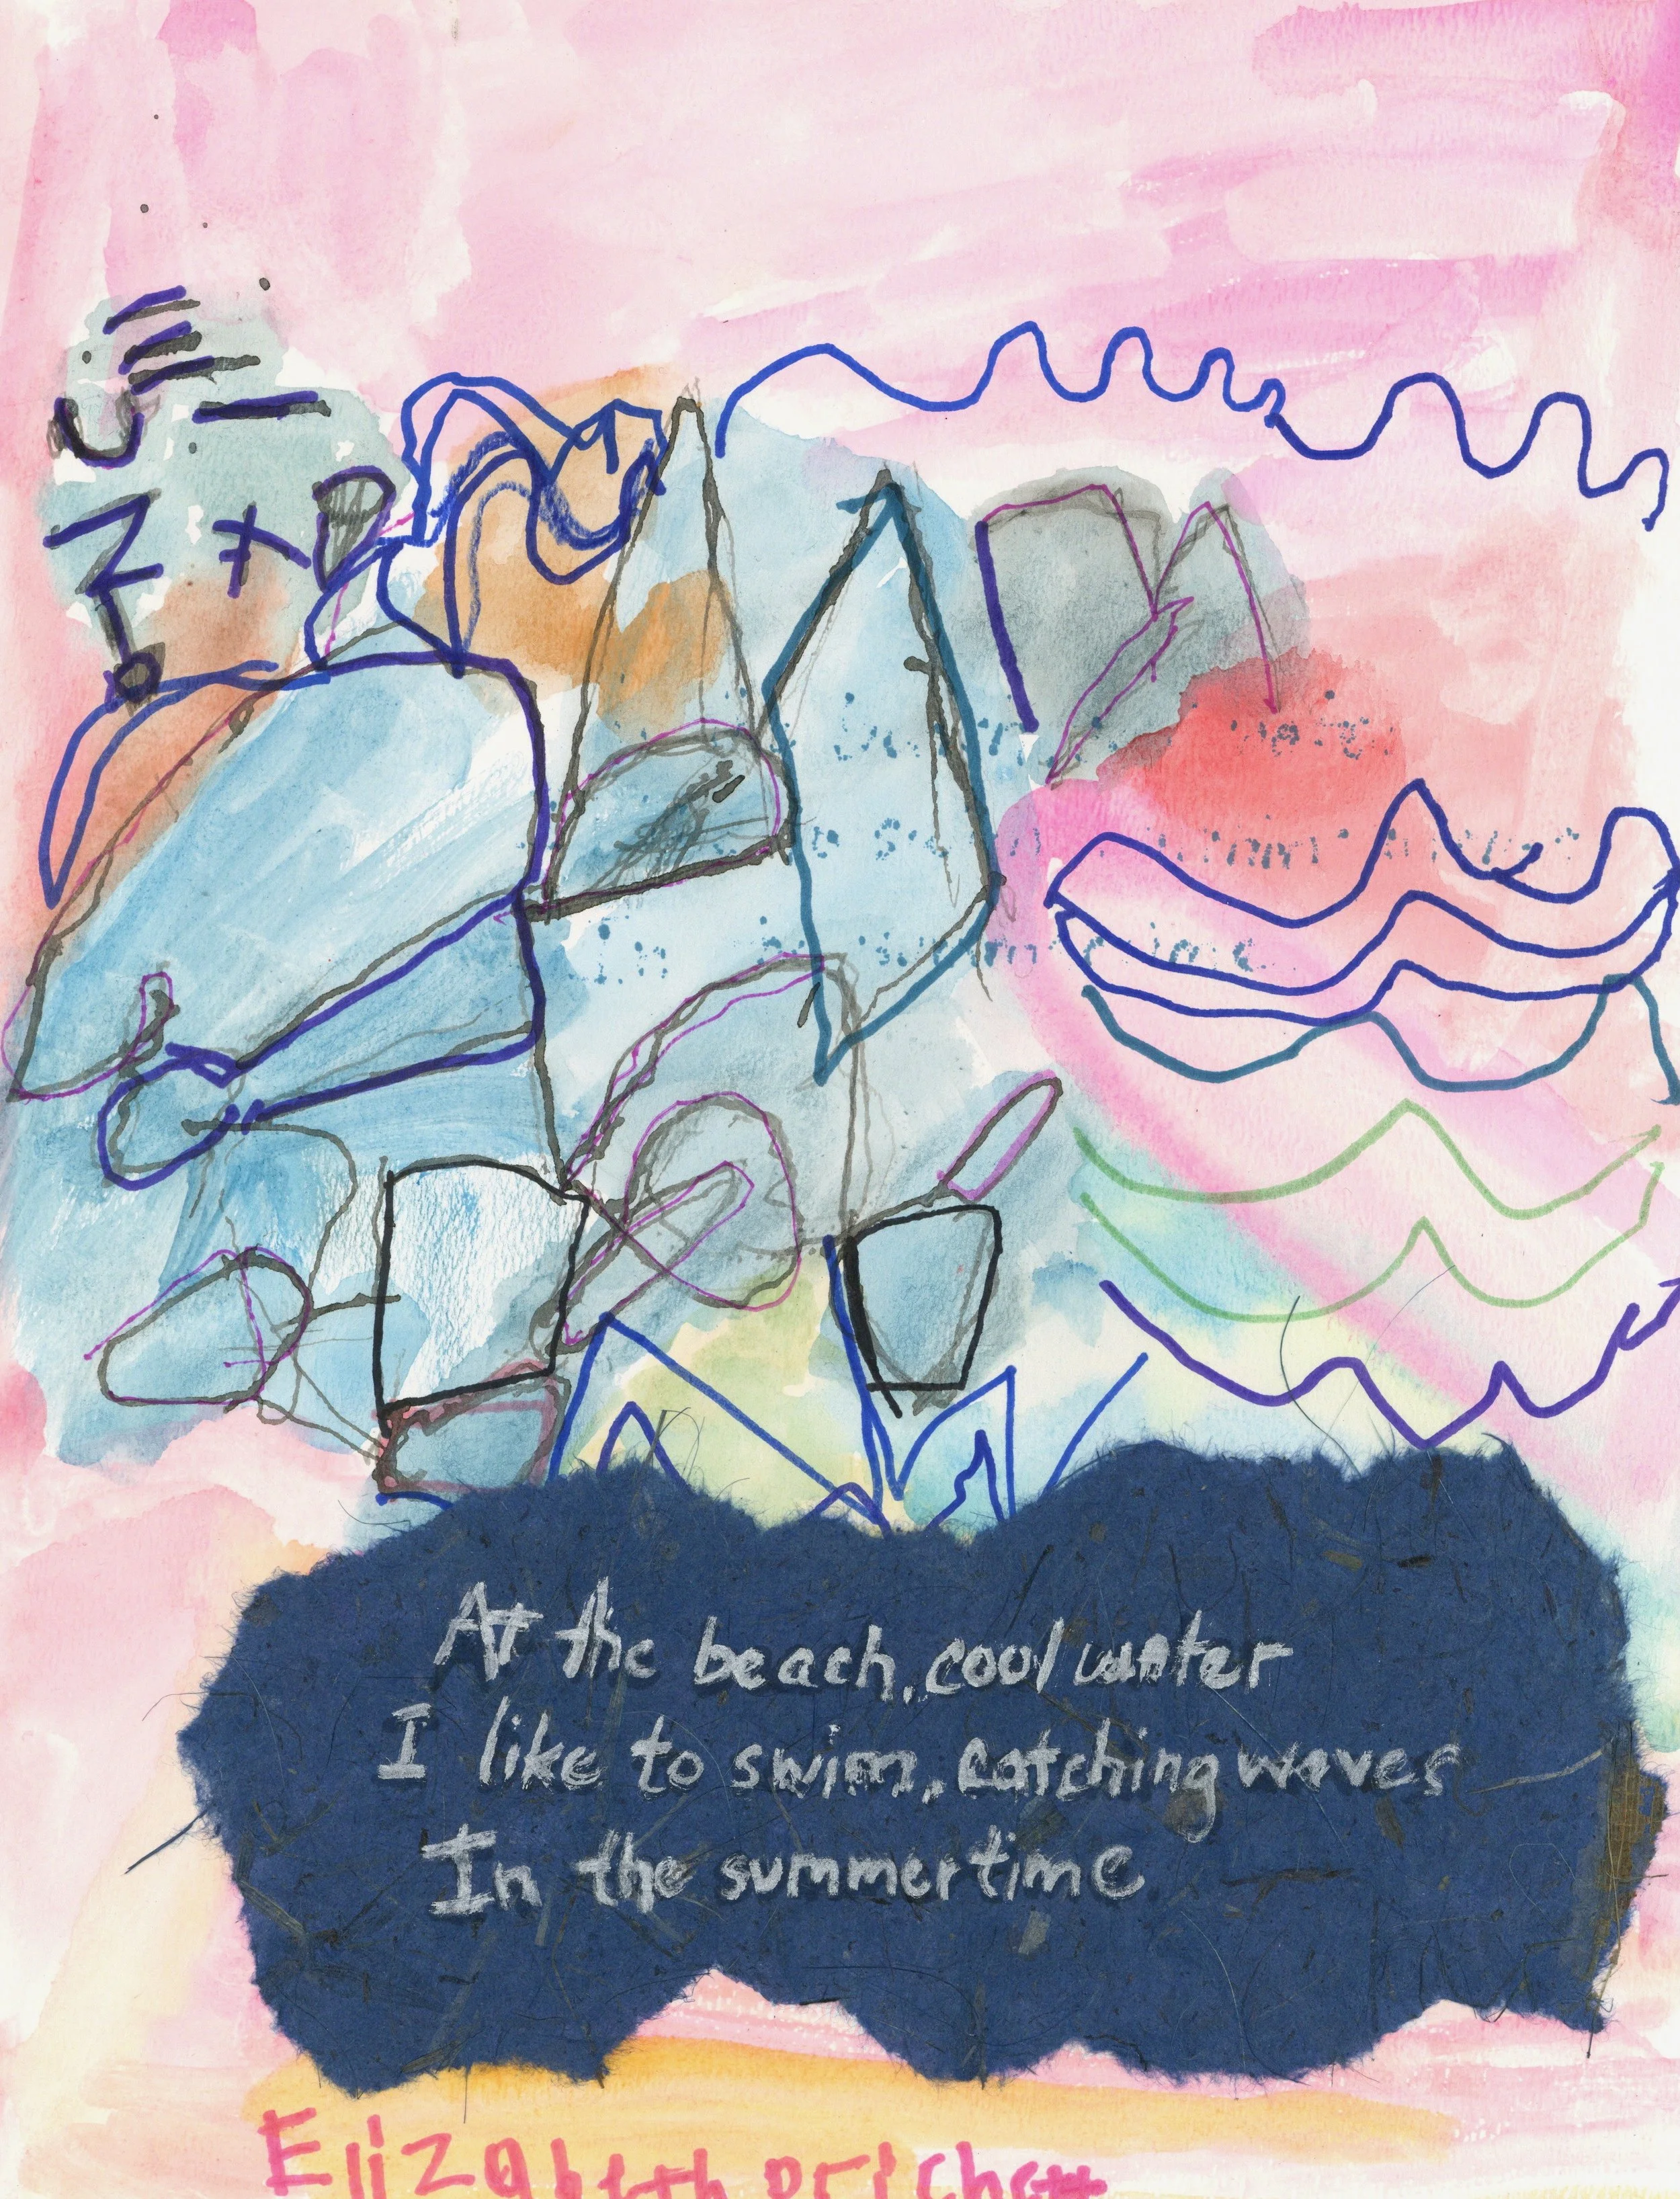 At the beach, cool water
I like to swim, catching waves
In the summertime
Elizabeth prichett